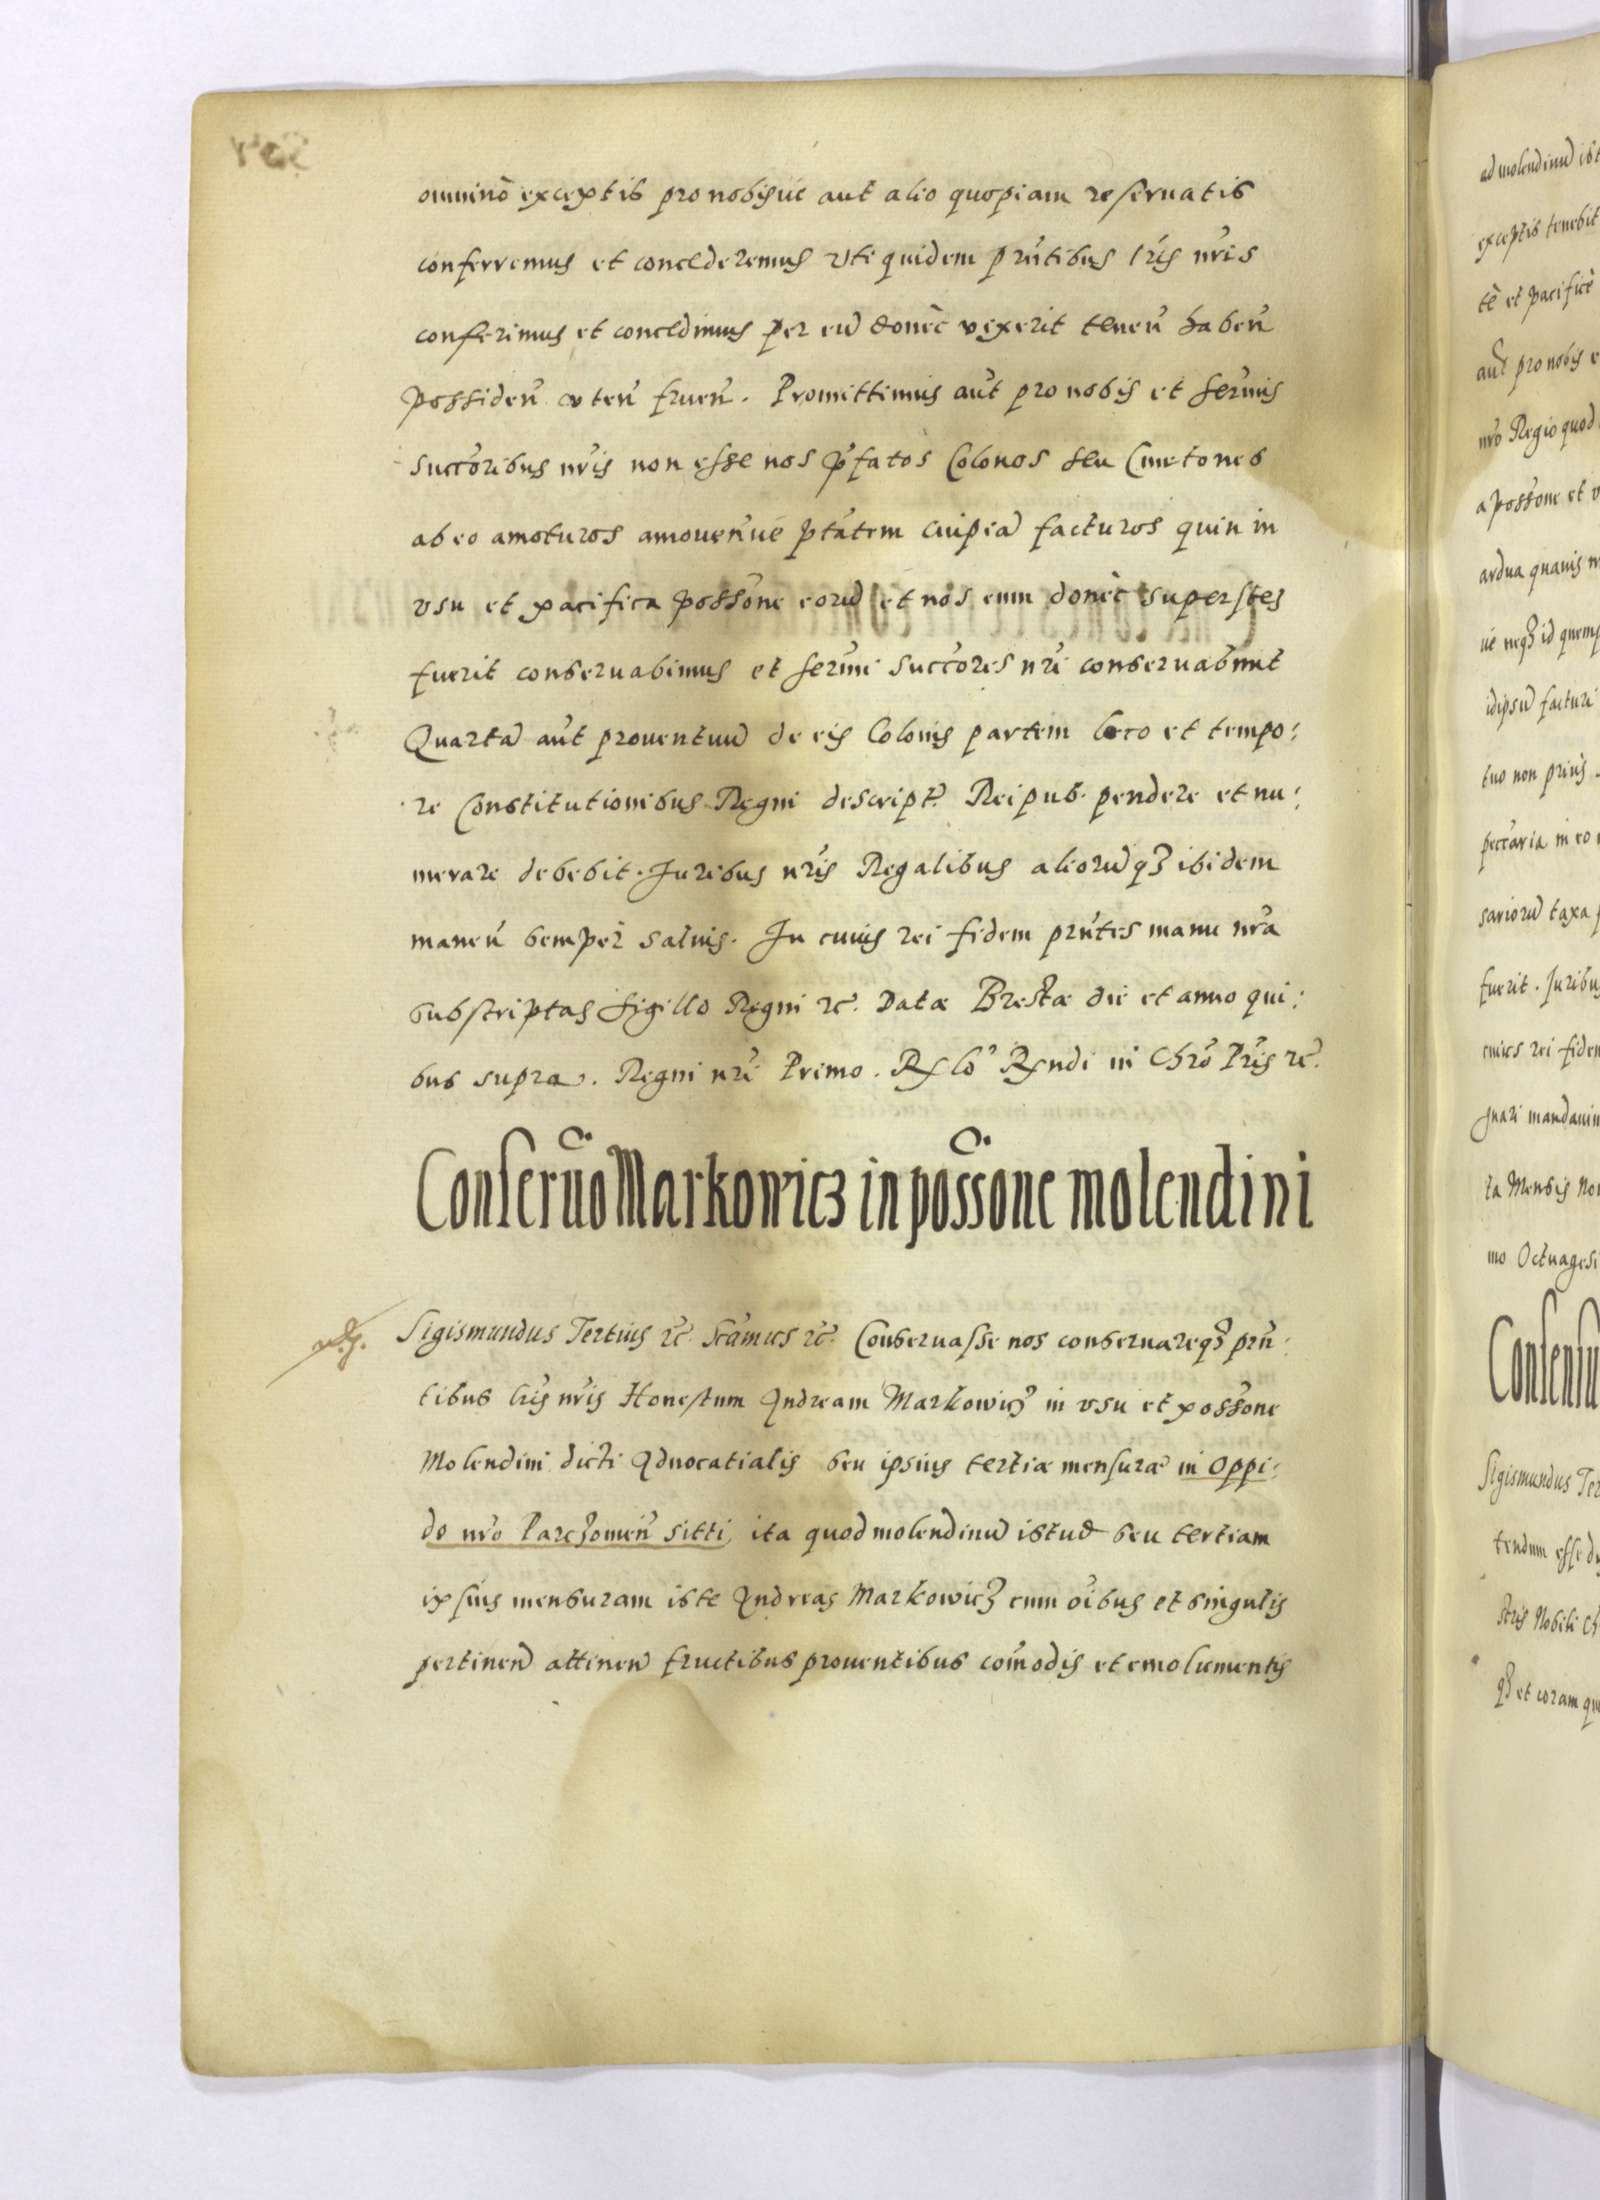 omninò exceptis pro nobisue aut alio quopiam reseruatis
conferremus et concederemus Vti quidem prñtibus lris nris
conferimus et concedimus per eum donèc vixerit tenen̄ haben̄
possiden̄ vten̄ fruen̄. Promittimus aut̄ pro nobis et sermis
succoribus nris non esse nos pfatos Colonos seu Cmetones
ab eo amoturos amouen̄ue ptātem cuipiā facturos quin in
vsu et pacifica possone eorū et nos eum donèc superstes
fuerit conseruabimus et sermi succores nri conseruabunt
Quartā aut̄ prouentuū de eis Colonis partem loco et tempo:
re Constitutionibus Regni descript. Reipub. pendere et nu:
merare debebit. Juribus nris Regalibus aliorūq3 ibidem
manen̄ semper saluis. In cuius rei fidem prñtes manu nra
subscriptas sigillo Regni rc̄. Datæ Brestæ die et anno qui:
bus supra. Regni nri Primo. Rlo Rndi in Chro Pris rc̄.
Conseruo Markowic3 in possone molendini
Sigismundus Tertius rc̄. Scāmus rc̄. Conseruasse nos conseruareq3 prn̄:
tibus lris nris Honestum Andream Markowic3 in vsu et possone
Molendini dicti Aduocatialis seu ipsius tertiæ mensuræ in Oppi:
do nro Parchomen̄ sitti, ita quod molendinū istud seu tertiam
ipsius mensuram iste Andreas Markowic3 cum oibus et singulis
pertinen̄ attinen̄ fructibus prouentibus com̄odis et emolumentis
ad molendinū ist
exceptis tenebit
tè et pacificè
aut pro nobis e
nro Regio quod
a possone et v
ardua quauis
ue neq3 id quemp
idipsū facturi
tuo non prius
in eo
sariorū taxa
fuerit. Juribu
cuius rei fidem
gnari mandauim
ta Mensis No
mo Octuagesi
Consensu
Sigismundus Ter
tendum esse du
stris Nobili Ch
q3 et coram qu